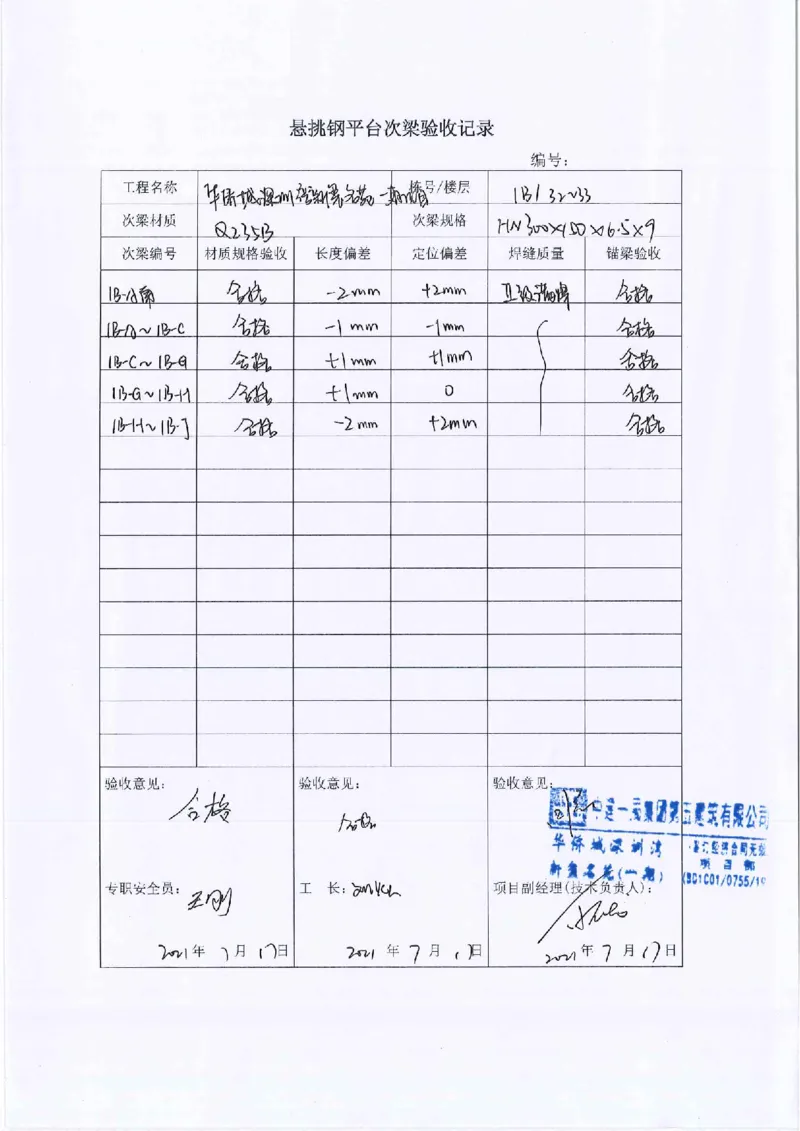 悬挑钢平台次梁验收记录
编号：
工程名称 华侨城深圳湾新玺名苑一期项目 栋号/楼层 1B/32~33
次梁材质 Q235B 次梁规格 HN300×150×6.5×9
次梁编号 材质规格验收 长度偏差 定位偏差 焊缝质量 锚梁验收
1B-A角 合格 -2mm +2mm 合格
1B-A~1B-C 合格 -1mm -1mm 合格
1B-C~1B-G 合格 +1mm +1mm 合格
1B-G~1B-H 合格 +1mm 0 合格
1B-H~1B-J 合格 -2mm +2mm 合格
验收意见： 验收意见： 验收意见：
合格 合格
中建一局集团第五建筑有限公司
华侨城深圳湾
新玺名苑(一期)
项目部
(BC1C01/0755/1
专职安全员：王刚 工 长： 项目副经理(技术负责人)：
2021年7月17日 2021年7月17日 2021年7月17日